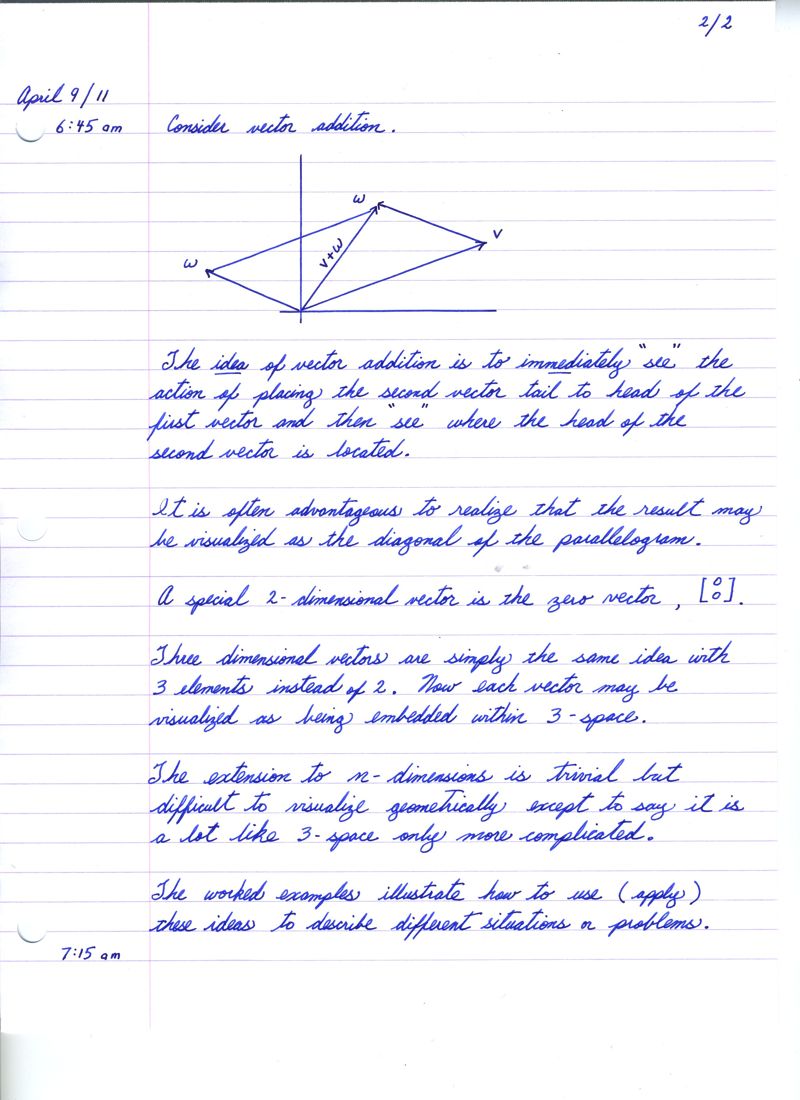 2/2
April 9/11
6:45 am
Consider vector addition.
w
v
w
v+w
The idea of vector addition is to immediately "see" the
action of placing the second vector tail to head of the
first vector and then "see" where the head of the
second vector is located.
It is often advantageous to realize that the result may
be visualized as the diagonal of the parallelogram.
A special 2-dimensional vector is the zero vector, [0 0].
Three dimensional vectors are simply the same idea with
3 elements instead of 2. Now each vector may be
visualized as being embedded within 3-space.
The extension to n-dimensions is trivial but
difficult to visualize geometrically except to say it is
a lot like 3-space only more complicated.
The worked examples illustrate how to use (apply)
these ideas to describe different situations or problems.
7:15 am